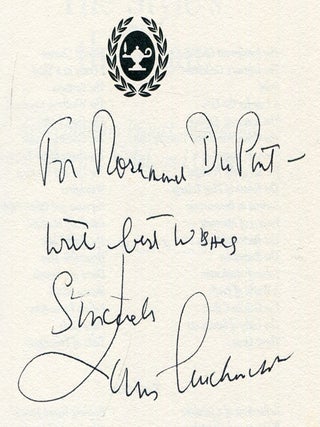 For Rosamond DuPont —
with best wishes
Sincerely
Louis Auchincloss